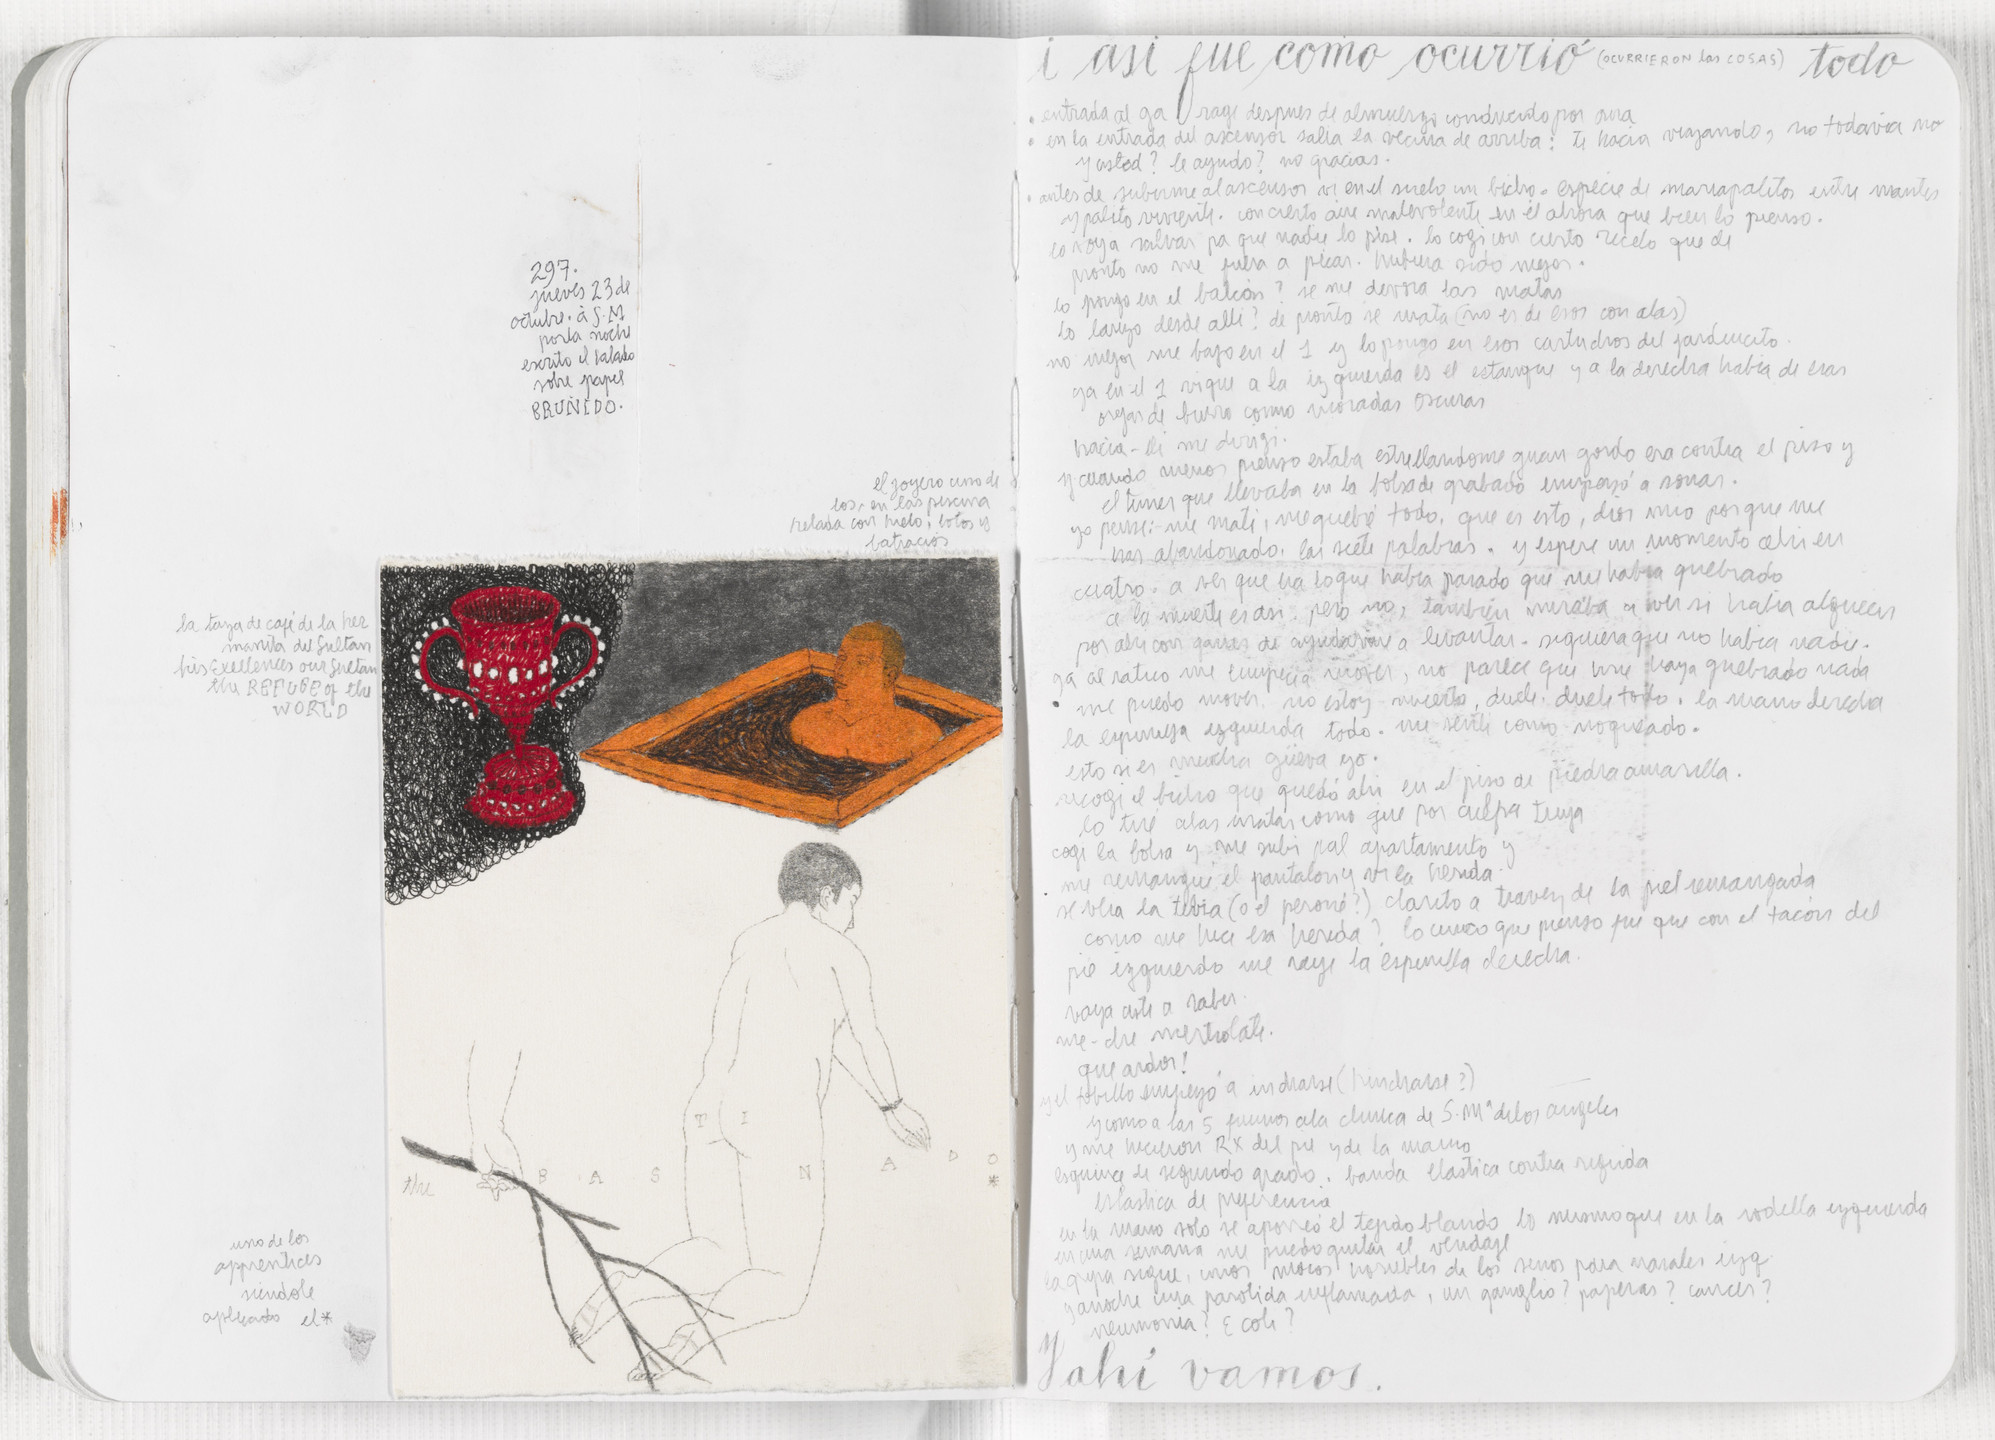 297.
jueves 23 de
octubre. à S.M
por la noche
escrito el
sobre papel
BRUÑIDO.
el joyero uno de
los, en las piscina
helada con hielo, lotos y
batracios
la taza de café de la her
manita del Sultan
his Excellences our Sultan
the REFUGE of the
WORLD
the BASTINADO*
uno de los
apprentices
siéndole
aplicado el*
i asi fue como ocurrió (OCURRIERON las COSAS) todo
• entrada al garage despues de almuerzo conducido por
• en la entrada del ascensor salia la vecina de arriba: te hacia viajando, no todavia no
y usted? le ayudo? no gracias.
• antes de subirme al ascensor vi en el suelo un bicho. especie de mariapalitos entre mantis
y palito viviente. con cierto aire malevolente en él ahora que bien lo pienso.
lo voy a salvar pa que nadie lo pise. lo cogi con cierto recelo que de
pronto no me fuera a picar. hubiera sido mejor.
lo pongo en el balcón? se me devora las matas
lo largo desde alli? de pronto se mata (no es de esos con alas)
no mejor me bajo en el 1 y lo pongo en esos cartuchos del jardincito.
ya en el 1 vi que a la izquierda es el estanque y a la derecha habia de esas
orejas de burro como moradas oscuras
hacia alli me dirigi.
y cuando menos pienso estaba estrellandome guan gordo era contra el piso y
el timer que llevaba en la bolsa de grabado empezó a sonar.
yo pensé: me maté, me quebré todo, que es esto, dios mio por que me
has abandonado, las siete palabras. y espere un momento ahi en
cuatro. a ver que era lo que habia pasado que me habia quebrado
o la muerte es asi. pero no, tambien miraba a ver si habia alguien
por ahi con ganas de ayudarme a levantar. siquiera que no habia nadie.
ya al ratico me empecé a mover, no parece que me haya quebrado nada
• me puedo mover, no estoy muerto, duele, duele todo, la mano derecha
la espinilla izquierda todo. me senti como noqueado.
esto si es mucha güeva yo.
recogi el bicho que quedó ahi en el piso de piedra amarilla.
lo tiré a las matas como que por culpa tuya
cogi la bolsa y me subi pal apartamento y
me remangué el pantalon y vi la herida.
se veia la tibia (o el peroné?) clarito a travez de la piel remangada
como me hice esa herida? lo unico que pienso fue que con el tacón del
pie izquierdo me raye la espinilla derecha.
vaya uste a saber.
me-che mertiolate.
que ardor!
y el tobillo empezó a incharse (hincharse?)
y como a las 5 fuimos a la clinica de S. Mª de los angeles
y me hicieron RX del pie y de la mano
esguince de segundo grado. banda elastica contra rigida
elastica de preferencia
en la mano solo se aporreó el tejido blando lo mismo que en la rodilla izquierda
en una semana me puedo quitar el vendaje
la gripa sigue, unos mocos horribles de los senos para nasales izq
y anoche una parotida inflamada, un ganglio? paperas? cancer?
neumonia? E coli?
Y ahí vamos.